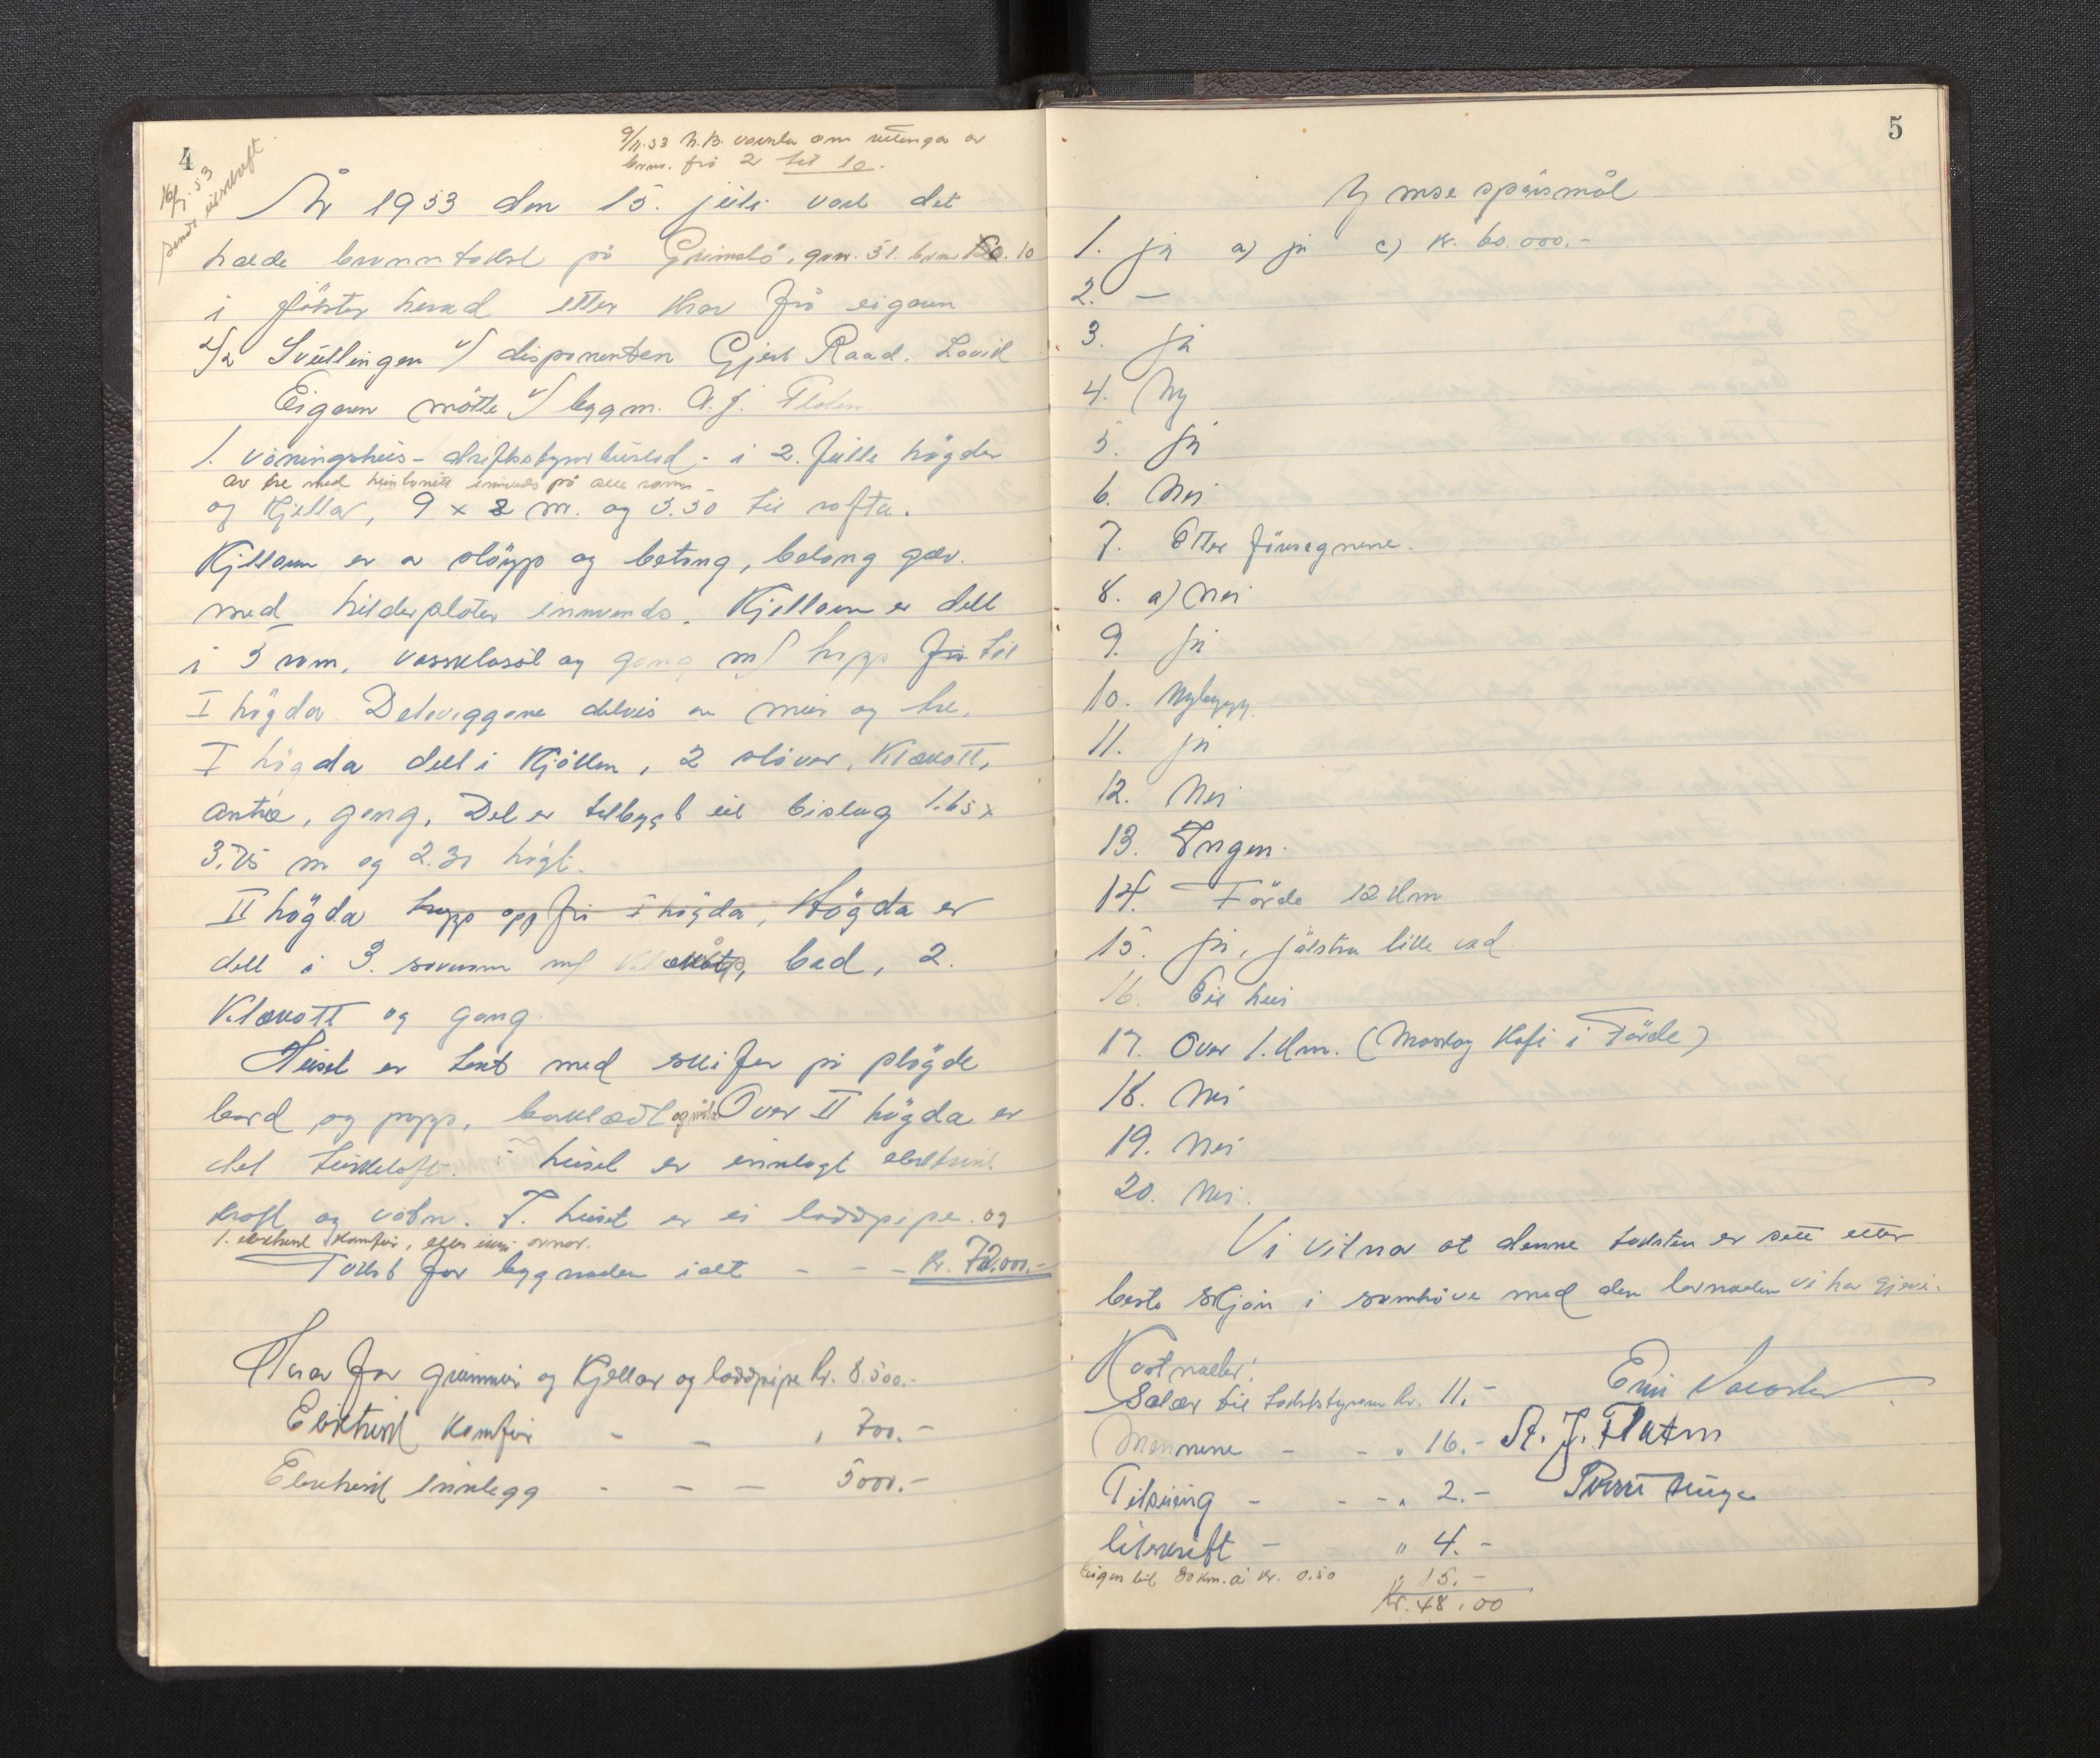 4
9/11.53 N.B. varsla om rettinga av
bnr. frå 2 til 10.
16/7.53
Sendt utskrift.
År 1953 den 15. juli vart det
halde branntakst på Grimsbø, gnr. 51. bnr. 10
i Jölster herad etter krav frå eigaren
disponenten Gjert Raad. Lavik
Eigaren mötte v/ byggm. A. J. Flaten
1. våningshus - driftsstyrarbustad - i 2. fulle högder
av tre med huntonitt innvends på alle romm
og Kjellar, 9 x 8 m. og 5.50 til rafta.
Kjellaren er av støyp og betong, betong golv.
med kilderplater innvends. Kjellaren er delt
i 3 rom, vassklosett og gang m/ trapp frå til
I högda. Deleveggene delvis av mur og tre.
I högda delt i Kjökken, 2 stover, Klækott,
antre, gang, Det er tilbygt eit bislag 1.65 x
3.75 m og 2.30 högt.
II högda trapp opp frå I högda, Högda er
delt i 3. soverom m/ bad, 2.
Klækott og gang.
Huset er tekt med skifer på pløgde
bord og papp, bordklædt Over II högda er
det turkeloft. i huset er innlagt elektrisk
kraft og vatn. I. huset er ei loddpipe og
1. elektrisk Komfur, elles ikkje ovnar.
Takst for bygnaden i alt - - - kr. 72.000.-
Herav for grunnmur og Kjellar og loddpipe kr. 8.500.-
Elektrisk Komfur - - " 700.-
Elektrisk innlegg - - - 5000.-
5
Ymse spörsmål
1. ja a) ja c) kr. 60.000.-
2. —
3. ja
4. Ny
5. ja
6. Nei
7. Etter föresegnene.
8. a) Nei
9. ja
10. Nybygg.
11. ja
12. Nei
13. Ingen.
14. Förde 12 Km
15. ja, jölstra like ved.
16. Eit hus
17. Over 1. Km. (Moskog Kafe i Förde)
18. Nei
19. Nei
20. Nei.
Vi vitnar at denne taksten er sett etter
beste skjön i samhöve med den lovnaden vi har gjeve.
Kostnader:
Salær til takststyraren kr. 11.-
Mennene - - " 16.- A. J. Flaten
Tilsuing - - - " 2.-
Utskrift - " 4.-
Eigen bil 30 km. á kr. 0.50 " 15.-
Kr. 48.00